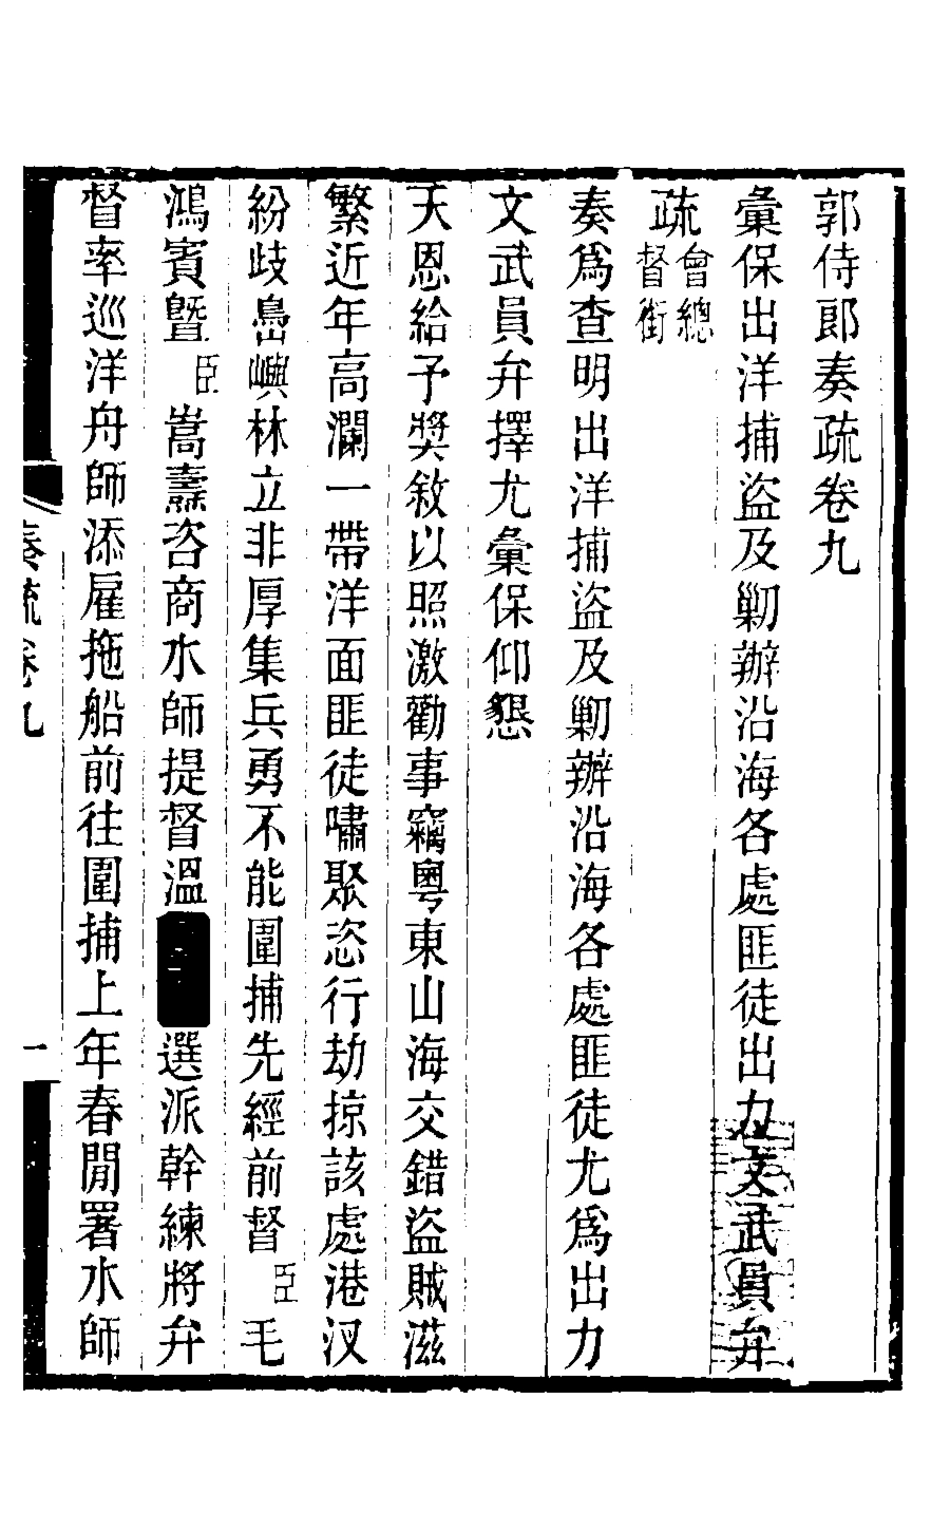 郭侍郎奏疏卷九
彙保出洋捕盜及剿辦沿海各處匪徒出力文武員弁
疏會總督銜
奏爲查明出洋捕盜及剿辦沿海各處匪徒尤爲出力
文武員弁擇尤彙保仰懇
天恩給予獎敘以照激勸事竊粵東山海交錯盜賊滋
繁近年高瀾一帶洋面匪徒嘯聚恣行劫掠該處港汊
紛歧島嶼林立非厚集兵勇不能圍捕先經前督臣毛
鴻賓曁臣嵩燾咨商水師提督溫選派幹練將弁
督率巡洋舟師添雇拖船前往圍捕上年春閒署水師
奏疏卷九
一